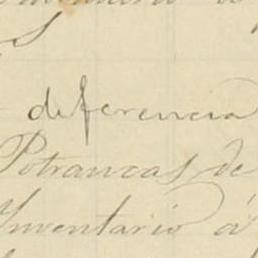 diferencia
Potrancas de
Inventario á